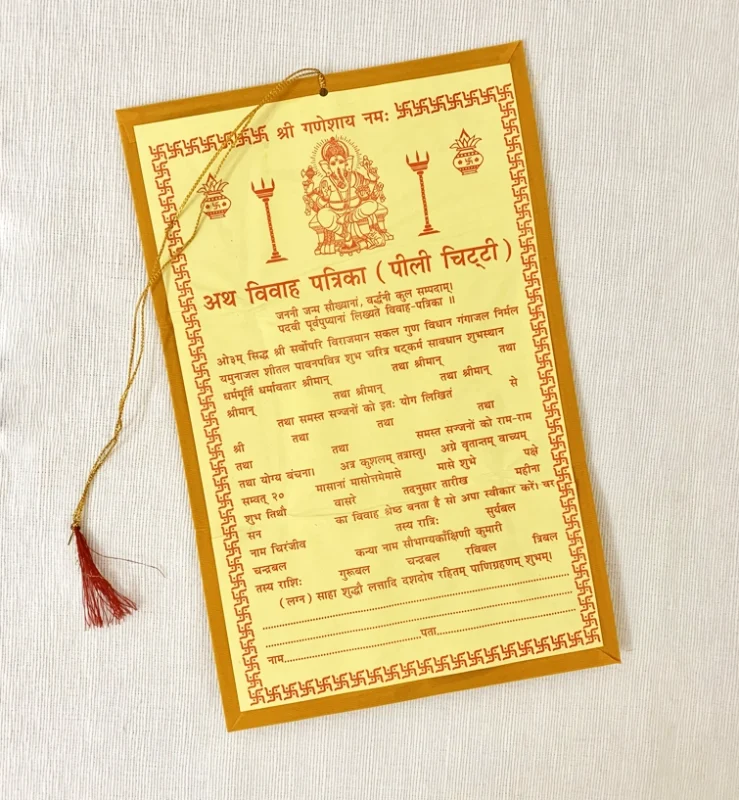 श्री गणेशाय नमः
अथ विवाह पत्रिका ( पीली चिट्टी )
जननी जन्म सौख्यानां, वर्द्धनी कुल सम्पदाम्।
पदवी पूर्वपुण्यानां लिख्यते विवाह-पत्रिका ॥
ओ३म् सिद्ध श्री सर्वोपरि विराजमान सकल गुण विधान गंगाजल निर्मल
यमुनाजल शीतल पावनपवित्र शुभ चरित्र षट्कर्म सावधान शुभस्थान
धर्ममूर्ति धर्मावतार श्रीमान् तथा श्रीमान् तथा
श्रीमान् तथा श्रीमान् तथा श्रीमान्
तथा समस्त सज्जनों को इतः योग लिखितं से
श्री तथा तथा तथा
तथा तथा समस्त सज्जनों को राम-राम
तथा योग्य बंचना। अत्र कुशलम् तत्रास्तु। अग्रे वृतान्तम् वाच्यम्
सम्वत् २० मासानां मासोत्तमेमासे मासे शुभे पक्षे
शुभ तिथी वासरे तदनुसार तारीख महीना
सन का विवाह श्रेष्ठ बनता है सो अपा स्वीकार करें। वर
नाम चिरंजीव तस्य रात्रिः सुर्यबल
चन्द्रबल कन्या नाम सौभाग्यकाँक्षिणी कुमारी
तस्य राशिः गुरूबल चन्द्रबल रविबल त्रिबल
(लग्न) साहा शुद्धौ लत्तादि दशदोष रहितम् पाणिग्रहणम् शुभम्।
नाम पता